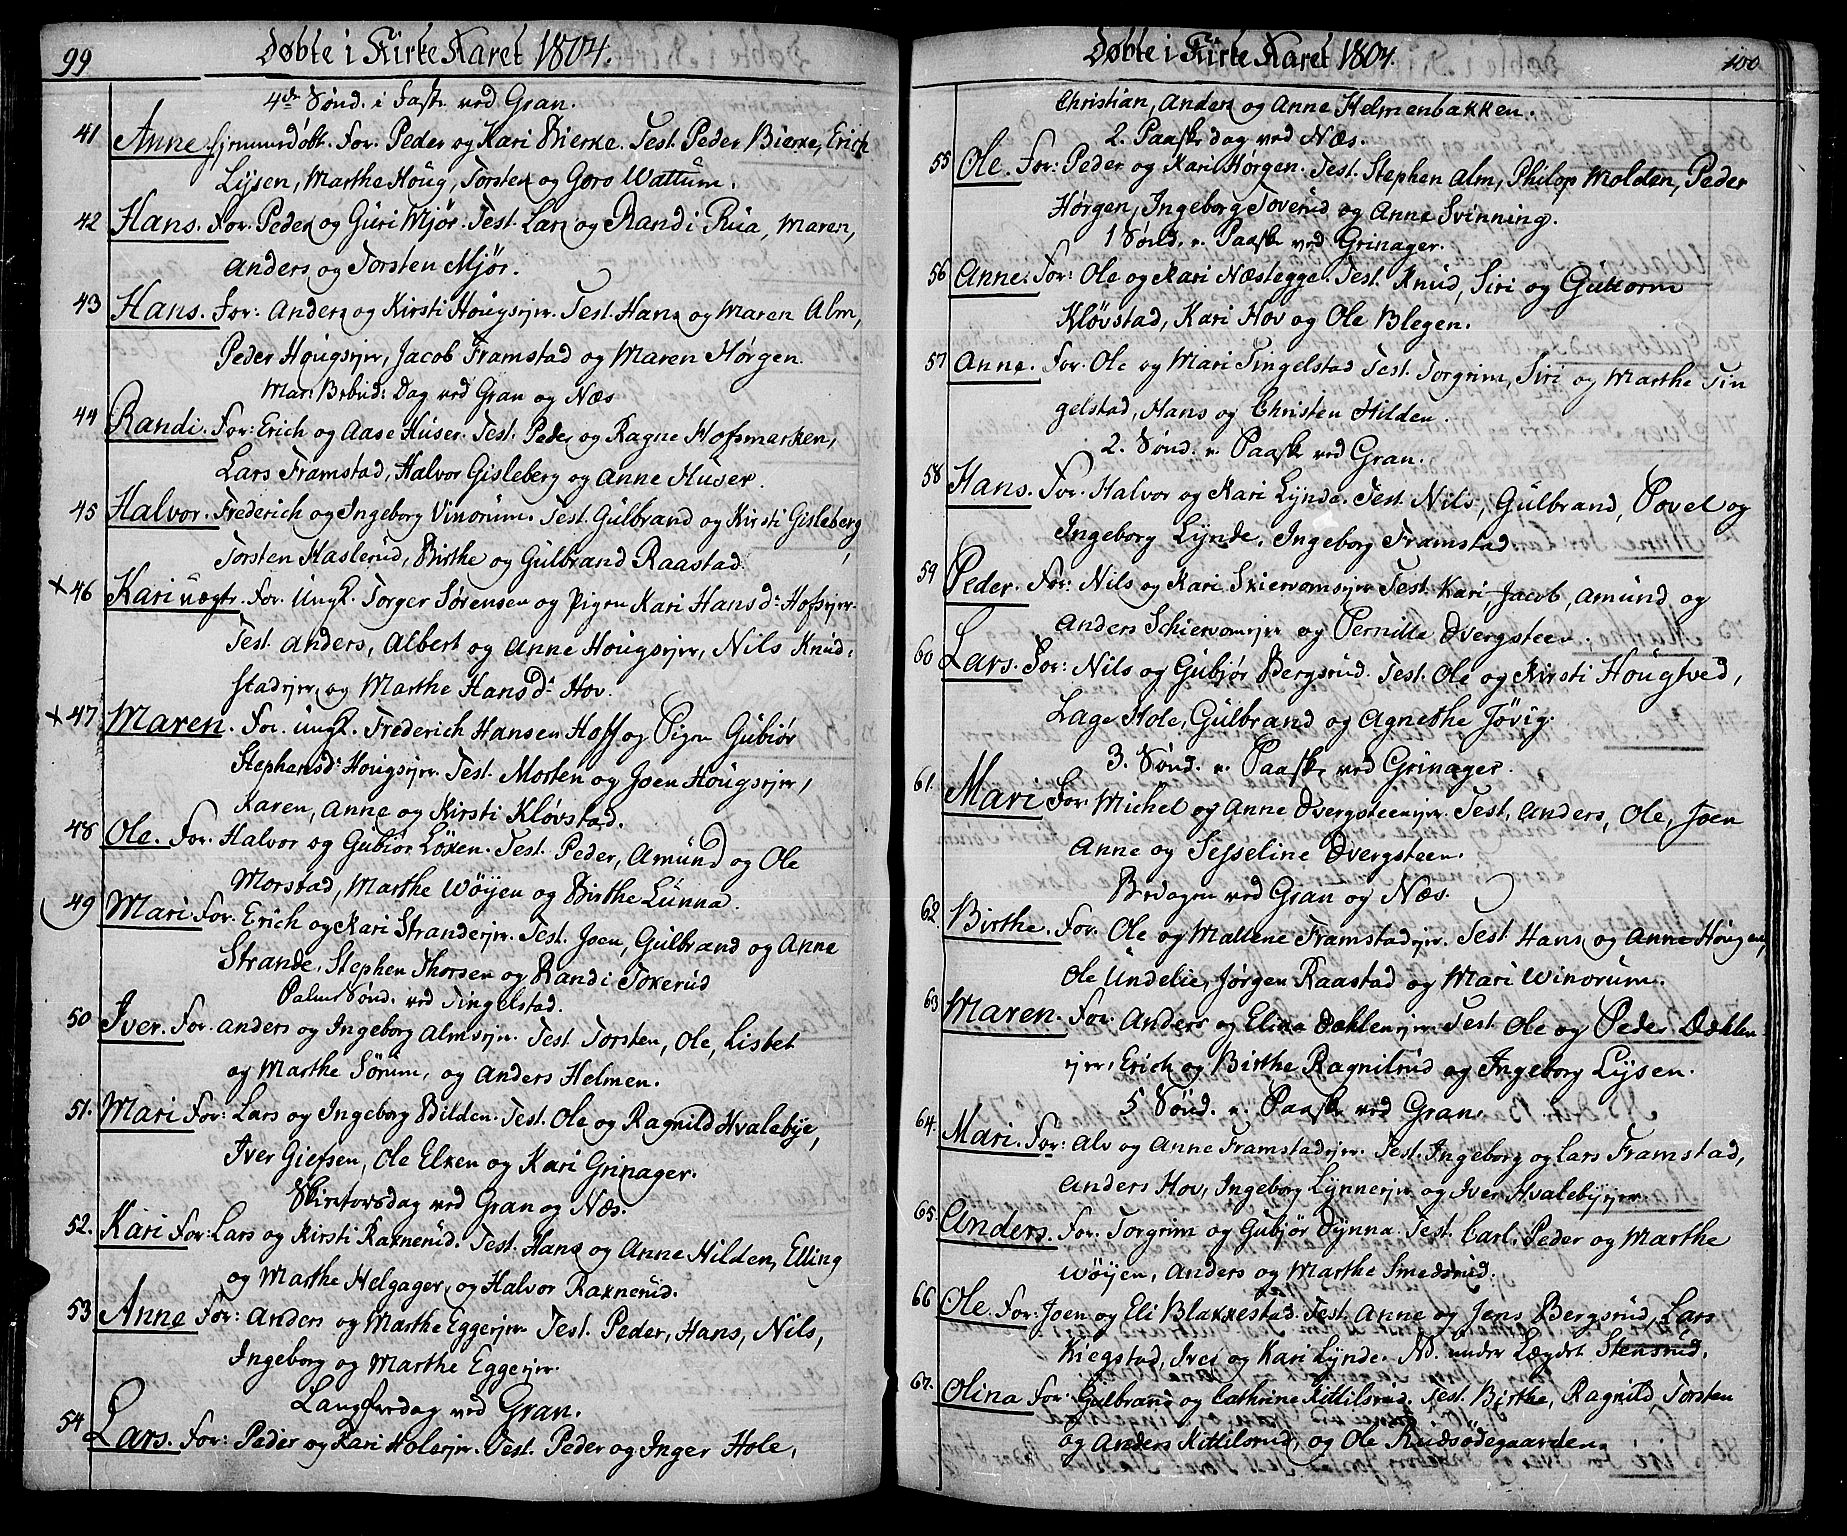 99
Døbte i Kirke Aaret 1804.
4de Sønd. i Fast. ved Gran.
41 Anne hjemmedøbt. For. Peder og Kari Bierke. Test. Peder Bierke, Erich
Lysen, Marthe Houg, Torsten og Goro Wattum.
42 Hans. For. Peder og Guri Mjør. Test. Lars og Randi Rua, Maren,
Anders og Torsten Mjør.
43 Hans. For: Anders og Kirsti Hougsejer. Test. Hans og Maren Alm,
Peder Hougsejer, Jacob Framstad og Maren Hørgen.
Mar: Bebud: Dag ved Gran og Næs
44 Randi. For: Erich og Aase Huser. Test. Peder og Ragne Hofsmarken,
Lars Framstad, Halvor Gisleberg og Anne Huser.
45 Halvor. Frederich og Ingeborg Vinorum. Test. Gulbrand og Kirsti Gisleberg,
Torsten Haslerud, Birthe og Gulbrand Raastad.
x 46 Kari uægte. For. Ungk. Torger Sørensen og Pigen Kari Hansd: Hofsejer.
Test. Anders, Albert og Anne Hougsejer, Nils Knud:
stadejer og Marthe Hansd: Hov.
x 47 Maren. For. Ungk. Frederich Hansen Hoff og Pigen Gubiør
Stephensd: Hougsejer. Test. Morten og Joen Hougsejer,
Karen, Anne og Kirsti Kløvstad.
48 Ole. For. Halvor og Gubiør Løken. Test. Peder, Amund og Ole
Morstad, Marthe Wøyen og Birthe Lunna.
49 Mari For. Erich og Kari Strandejer. Test. Joen, Gulbrand og Anne
Strande, Stephen Thorsen og Randi Tokerud
Palme Sønd. ved Tingelstad.
50 Iver. For. Anders og Ingeborg Almsejer. Test Torsten, Ole, Lisbet
og Marthe Sørum, og Anders Helmen.
51. Mari For: Lars og Ingeborg Bilden. Test. Ole og Ragnild Hvalebye,
Iver Giefsen, Ole Elken og Kari Grinager.
Skirtorsdag ved Gran og Næs.
52. Kari For: Lars og Kirsti Raknerud. Test. Hans og Anne Hilden, Elling
og Marthe Helgager, og Halvor Raknerud.
53 Anne For: Anders og Marthe Eggeejer Test. Peder, Hans, Nils,
Ingeborg og Marthe Eggeejer.
Langfredag ved Gran.
54 Lars. For: Peder og Kari Holeejer. Test. Peder og Inger Hole,
100
Døbte i Kirke Aaret 1804.
Christian, Anders og Anne Helmenbakken.
2. Paaske dag ved Næs.
55 Ole. For: Peder og Kari Hørgen. Test. Stephen Alm, Philop Molden, Peder
Hørgen, Ingeborg Toverud og Anne Svinning.
1 Sønd. e. Paask. ved Grinager.
56 Anne. For: Ole og Kari Næstegge. Test. Knud, Siri og Guttorm
Kløvstad, Kari Hov og Ole Blegen.
57 Anne. For. Ole og Mari Tingelstad Test. Torgrim, Siri og Marthe Tin
gelstad, Hans og Christen Hilden.
2. Sønd. e. Paask ved Gran.
58 Hans. For. Halvor og Kari Lynde. Test. Nils, Gulbrand, Povel og
Ingeborg Lynde, Ingeborg Framstad
59 Peder. For: Nils og Kari Skiervomsejer Test. Kari, Jacob, Amund og
Anders Schiervomejer og Pernille Dvergsteen.
60 Lars. For: Nils og Gubjør Bergsrud. Test. Ole og Kirsti Hougtved,
Lage Hole, Gulbrand og Agnethe Jøvig.
3. Sønd. e. Paask. ved Grinager.
61. Mari For: Michel og Anne Dvergsteenejer. Test. Anders, Ole, Joen
Anne og Sesseline Dvergsteen.
Bededagen ved Gran og Næs.
62. Birthe. For. Ole og Mallene Framstadejer. Test. Hans og Anne Hougen,
Ole Undelie, Jørgen Raastad og Mari Winorum.
63 Maren. For. Anders og Elina Dæhlenejer. Test. Ole og Peder Dæhlen
ejer, Erich og Birthe Ragnilrud og Ingeborg Lysen.
5 Sønd. e. Paask ved Gran.
64. Mari. For: Alv og Anne Framstadejer. Test. Ingeborg og Lars Framstad,
Anders Hov, Ingeborg Lynneejer og Iver Hvalebyejer
65. Anders. For. Torgrim og Gubjør Dynna. Test. Carl, Peder og Marthe
Wøyen, Anders og Marthe Smedsrud.
66 Ole. For. Joen og Eli Blakkestad. Test. Anne og Jens Bergsrud, Lars
Kiegstad, Iver og Kari Lynde. NB. under Lægdet Stensrud.
67. Olina For. Gulbrand og Cathrine Kittilsrud. Test. Birthe, Ragnild Torsten
og Anders Kittilsrud, og Ole Rudsødegaarden.